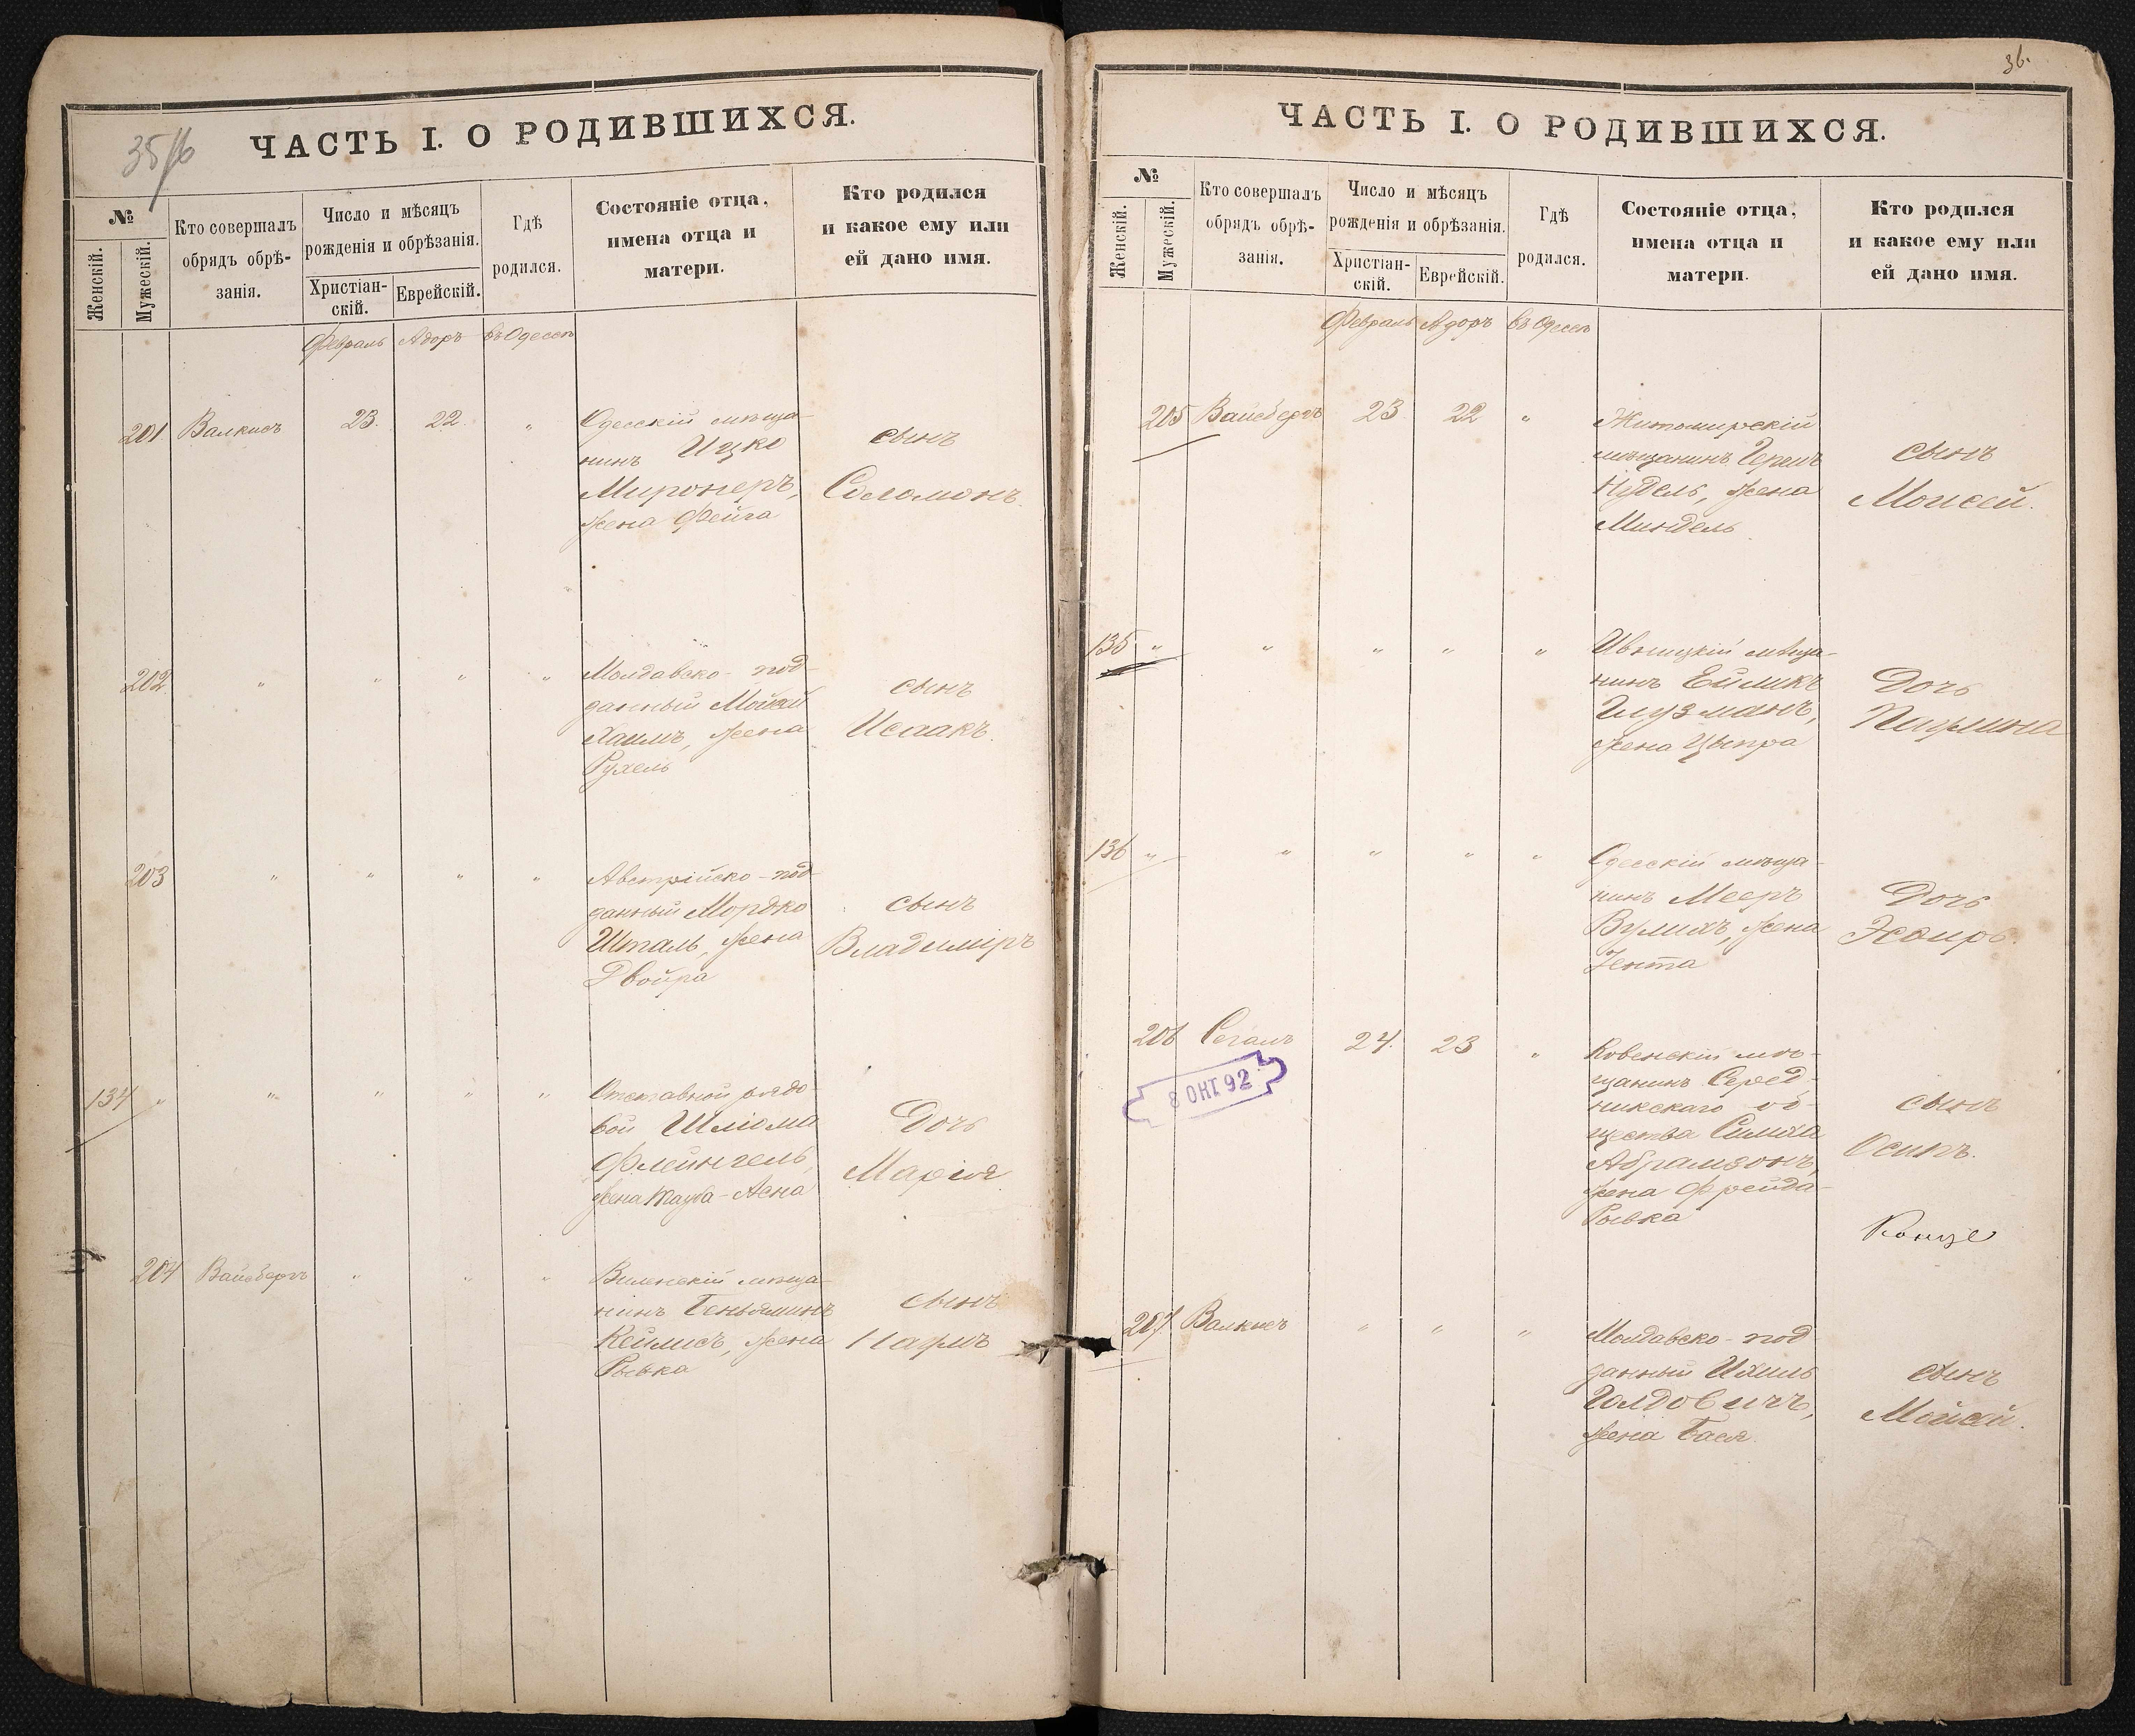 35/b
ЧАСТЬ I. О РОДИВШИХСЯ.
№
Женскій.
Мужескій.
Кто совершалъ
обрядъ обрѣ-
занія.
Число и мѣсяцъ
рожденія и обрѣзанія.
Христіан-
скій.
Еврейскій.
Гдѣ
родился.
Состояніе отца,
имена отца и
матери.
Кто родился
и какое ему или
ей дано имя.
Февраль Адоръ въ Одессѣ
201 Валкисъ 23. 22. "
Одесскій мѣща-
нинъ Ицко
Миронеръ,
жена Фейга
сынъ
Соломонъ
202 " " " "
Молдавско-под-
данный Мойсей
Хаимъ, жена
Рухель
сынъ
Исаакъ.
203 " " " "
Австрійско-под-
данный Мордко
Шталь, жена
Двойра
сынъ
Владиміръ
134 " " " " "
Отставной рядо-
вой Шліома
Флейнгель,
жена Тауба-Асна
Дочь
Марія
204 Вайсбергъ " " "
Виленскій мѣща-
нинъ Беньяминъ
Кеймисъ, жена
Рывка
сынъ
Наумъ
36.
ЧАСТЬ I. О РОДИВШИХСЯ.
№
Женскій.
Мужескій.
Кто совершалъ
обрядъ обрѣ-
занія.
Число и мѣсяцъ
рожденія и обрѣзанія.
Христіан-
скій.
Еврейскій.
Гдѣ
родился.
Состояніе отца,
имена отца и
матери.
Кто родился
и какое ему или
ей дано имя.
Февраль Адоръ въ Одессѣ
205 Вайсбергъ 23. 22 "
Житомирскій
мѣщанинъ Гершъ
Нудель, жена
Миндель
сынъ
Моисей.
135 " " " " "
Ивницкій мѣща-
нинъ Ейликъ
Глузманъ,
жена Цыпра
Дочь
Паулина
136 " " " " "
Одесскій мѣща-
нинъ Мееръ
Вулихъ, жена
Іента
Дочь
Эсѳирь.
206 Сегалъ 24. 23 "
8 ОКТ 92
Ковенскій мѣ-
щанинъ Серед-
никскаго об-
щества Симха
Абрамзонъ,
жена Фрейда-
Рывка
сынъ
Осипъ.
207 Валкисъ " " "
Молдавско-под
данный Ихиль
Голдовичъ,
жена Бася.
сынъ
Мойсей.